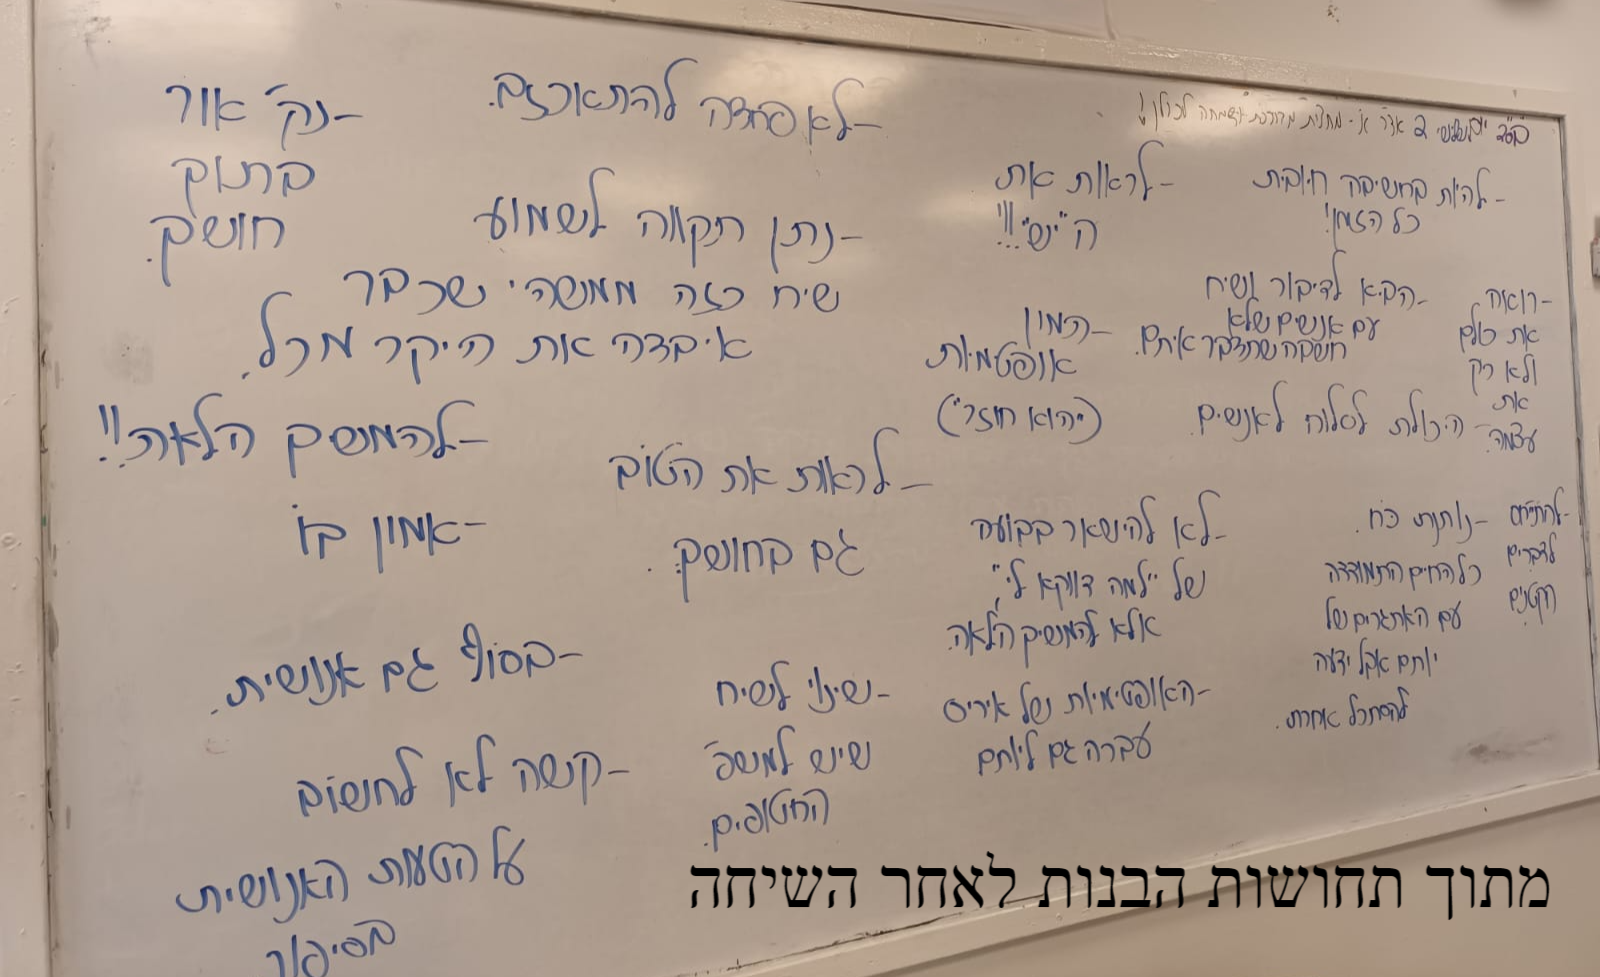 בס"ד יום שני ב אדר א'- מחצית מבורכת ושמחה לכולן!
-להיות בחשיבה חיובית
כל הזמן!
-רואה
את כולם
ולא רק
את
עצמה.
-הביא לדיבור ושיח
עם אנשים שלא
חושבה שתדבר איתם.
-היכולת לסלוח לאנשים.
-להתייחס
לדברים
הקטנים
-נותנת כח.
כל החיים התמודדה
עם האתגרים של
יותם אבל ידעה
להסתכל אחרת.
-לראות את
ה"יש"!!!
-המון
אופטמיות
("הוא חוזר")
-לא להישאר בבועה
של "למה דווקא לי",
אלא להמשיך הלאה.
-האופטימיות של איריס
עברה גם ליותם
-לא פחדה להתארגן.
-נתן תקווה לשמוע
שיח כזה ממשהי שכבר
איבדה את היקר מכל.
-לראות את הטוב
גם בחושך.
-שינוי לשיח
שיש למשפ'
החטופים.
-נק' אור
בתוך
חושך.
-להמשיך הלאה!!
-אמון בו
-בסוף גם אנושית.
-קשה לא לחשוב
על הטעות האנושית
בסיפור
מתוך תחושות הבנות לאחר השיחה